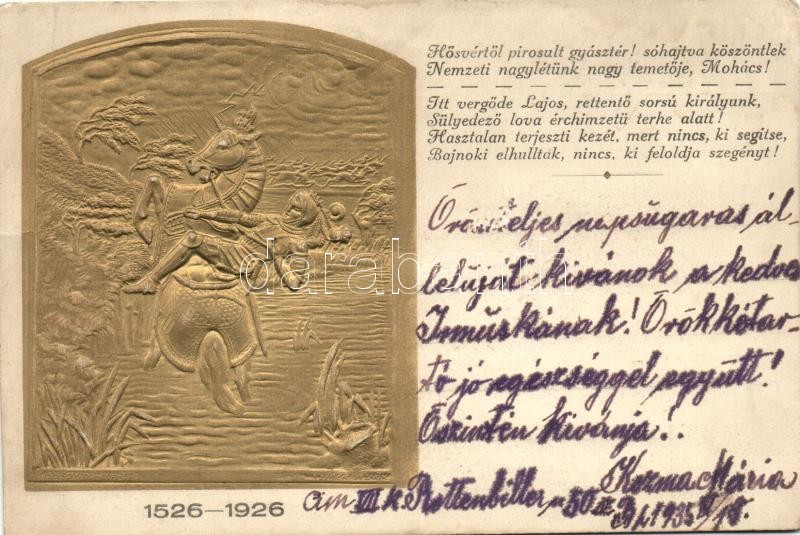 Hősvértől pirosult gyásztér! sóhajtva köszöntlek
Nemzeti nagylétünk nagy temetője, Mohács!
Itt vergőde Lajos, rettentő sorsú királyunk,
Sülyedező lova érchimzetü terhe alatt!
Hasztalan terjeszti kezét, mert nincs, ki segitse,
Bajnoki elhulltak, nincs, ki feloldja szegényt!
Örömteljes napsugaras ál-
leluját kivánok a kedves
Irmuskának! Örökkötar-
tó jó egészséggel együtt!
Őszintén kivánja!..
Kozma Mária
Cim VII k. Rottenbiller u 50
1935
1526—1926
darabanth